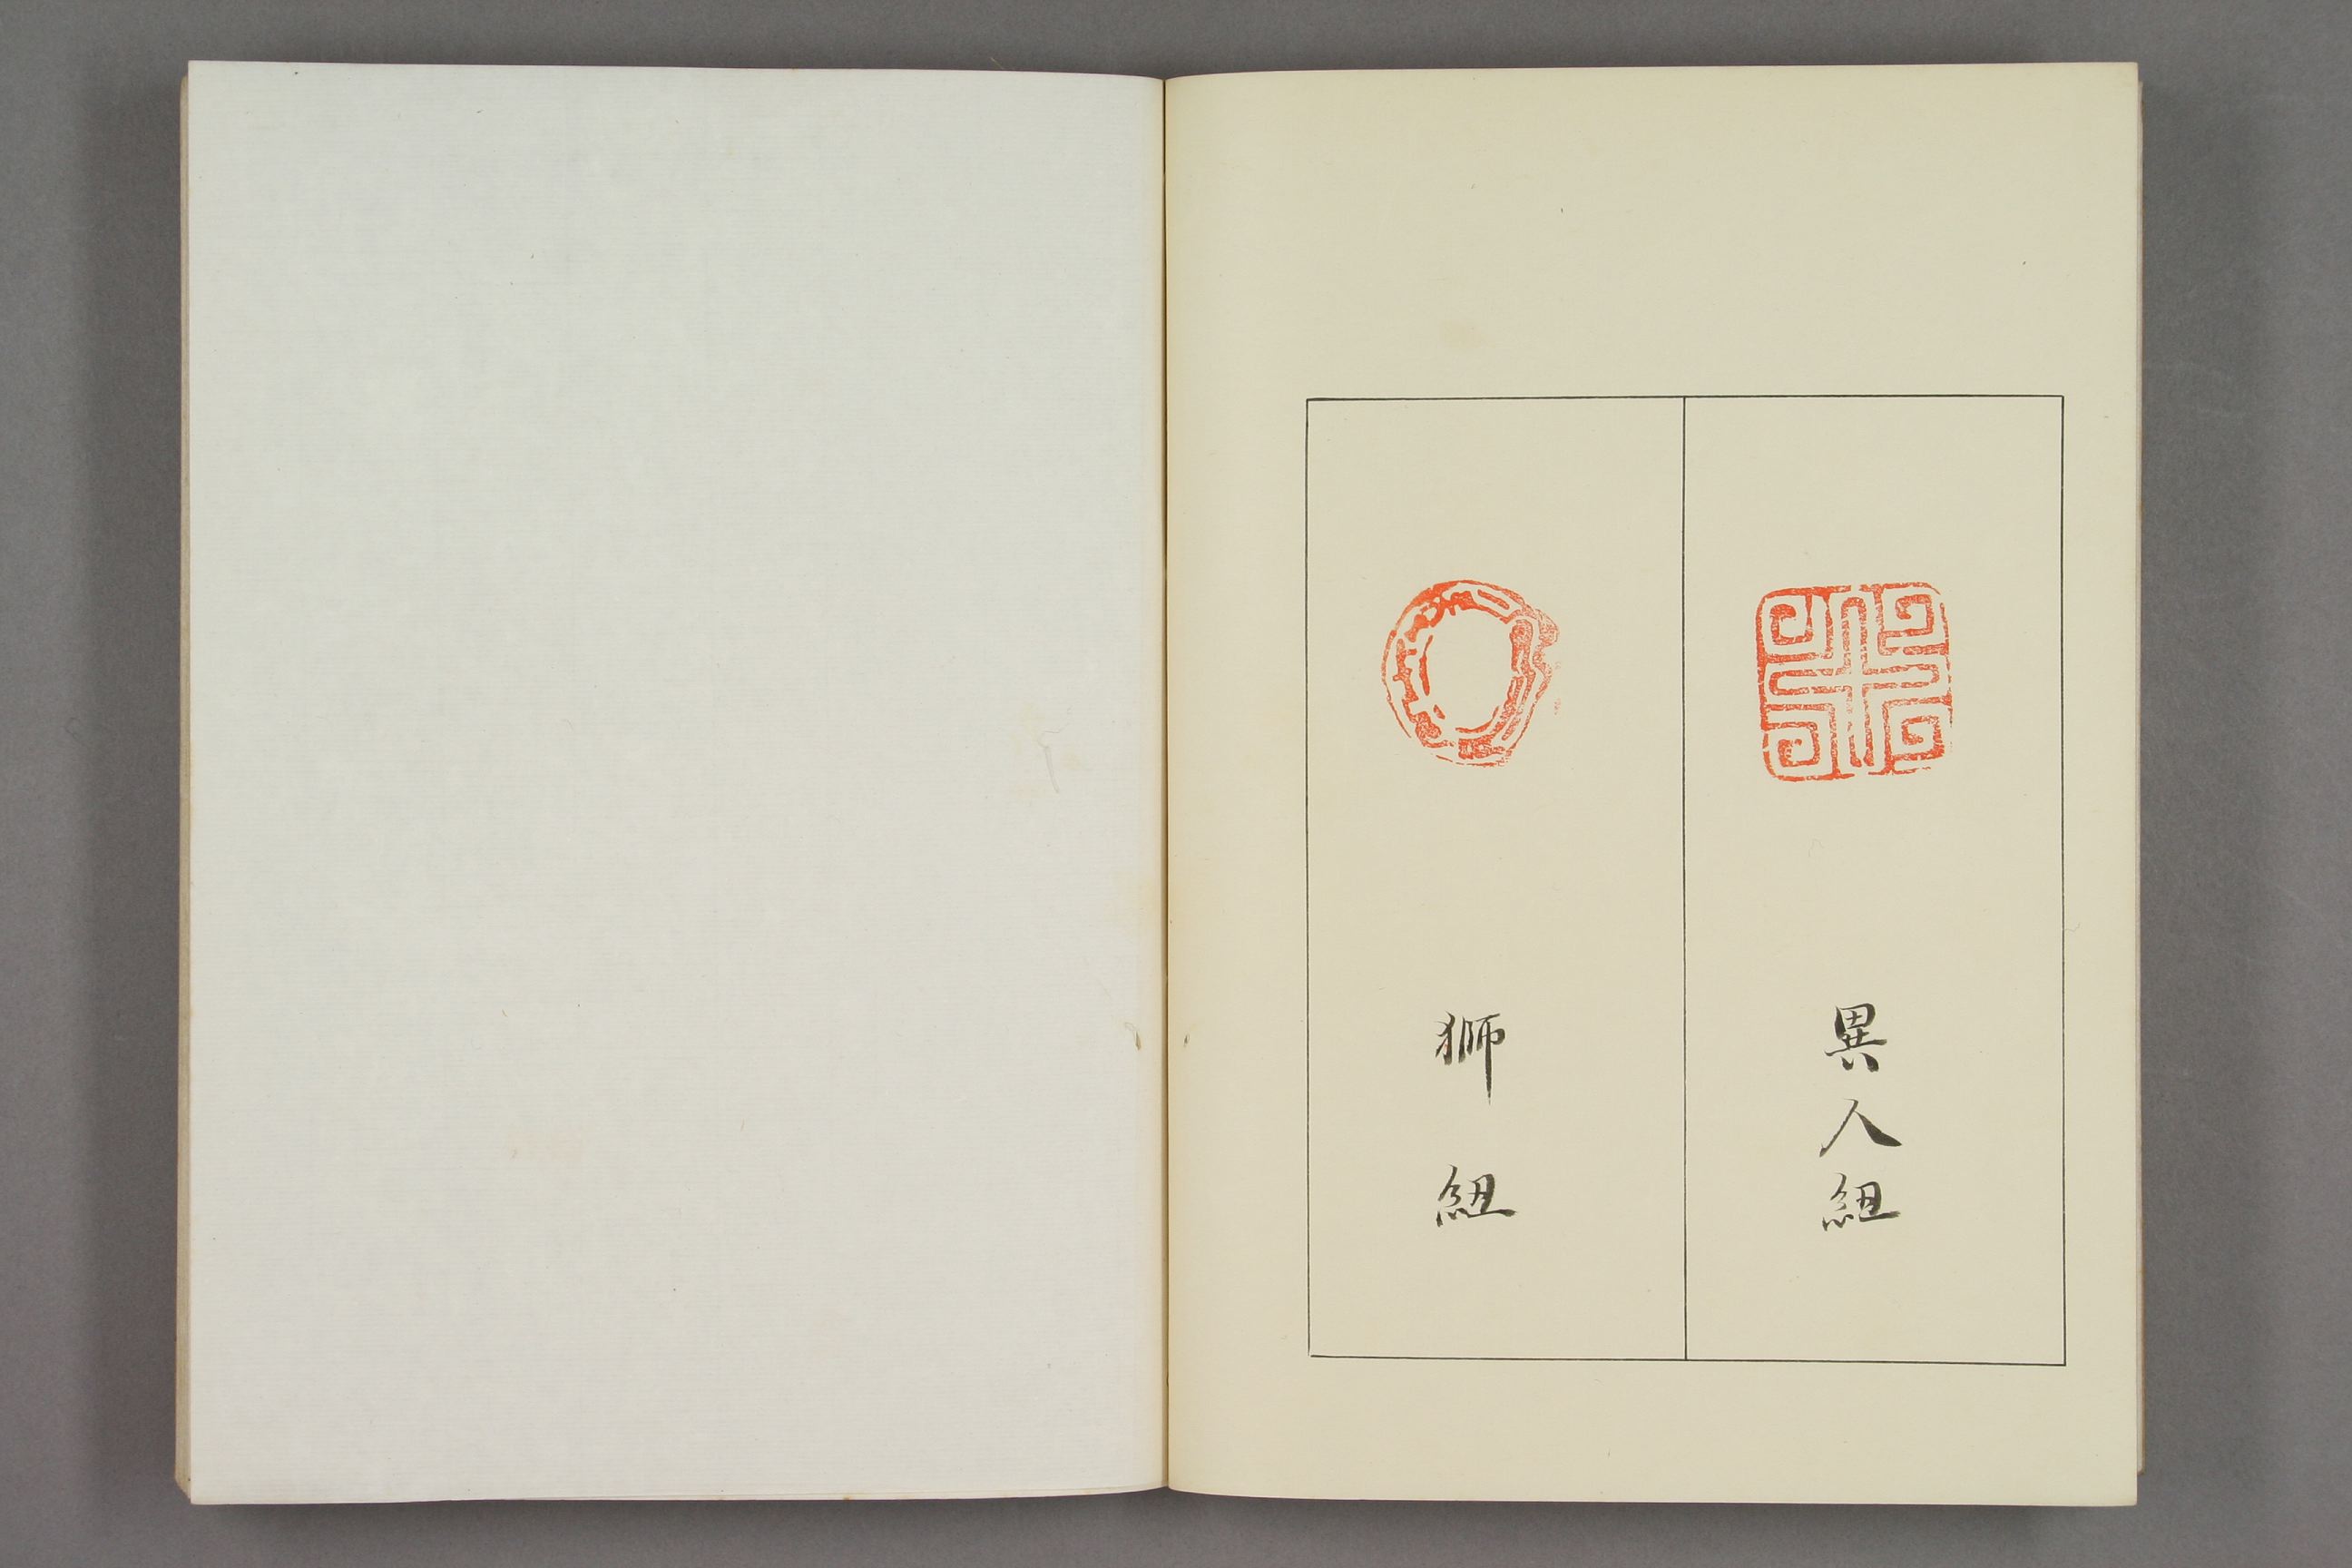 異人紐
獅紐